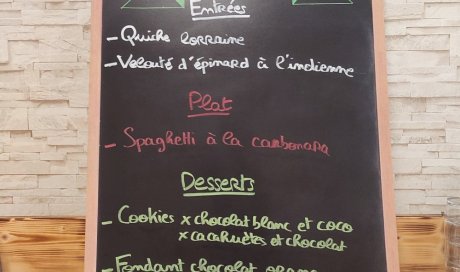 Entrées
- Quiche lorraine
- Velouté d'épinard à l'indienne
Plat
- Spaghetti à la carbonara
Desserts
- Cookies x chocolat blanc et coco
x cacahuètes et chocolat
- Fondant chocolat orange